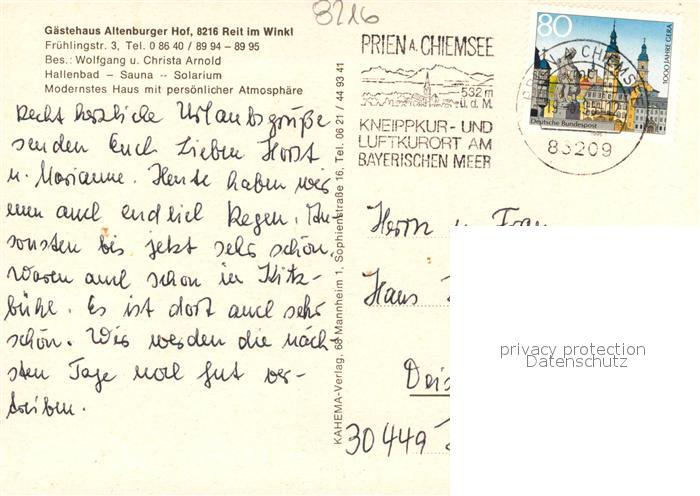 8216
Gästehaus Altenburger Hof, 8216 Reit im Winkl
Frühlingstr. 3, Tel. 0 86 40 / 89 94 - 89 95
Bes.: Wolfgang u. Christa Arnold
Hallenbad - Sauna -- Solarium
Modernstes Haus mit persönlicher Atmosphäre
Recht herzliche Urlaubsgrüße
senden Euch Lieben Horst
u. Marianne. Heute haben wir
nun auch endlich Regen. An-
sonsten bis jetzt sehr schön.
Waren auch schon in Kitz-
bühl. Es ist dort auch sehr
schön. Wir werden die näch-
sten Tage noch gut ver-
treiben.
KAHEMA-Verlag, 68 Mannheim 1, Sophienstraße 16, Tel. 06 21 / 44 93 41
PRIEN A. CHIEMSEE
532 m
ü. d. M.
KNEIPPKUR- UND
LUFTKURORT AM
BAYERISCHEN MEER
80
1000 JAHRE GERA
Deutsche Bundespost
CHIEMSEE
83209
Herrn u. Frau
Hans
Deis
30449
privacy protection
Datenschutz